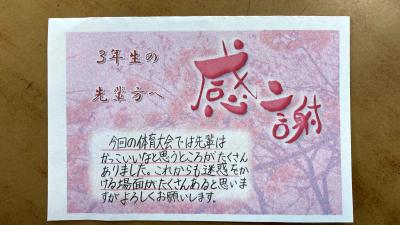 3年生の
先輩方へ
感謝
今回の体育大会では先輩は
かっこいいなと思うところがたくさん
ありました。これからも迷惑をか
ける場面がたくさんあると思いま
すがよろしくお願いします。